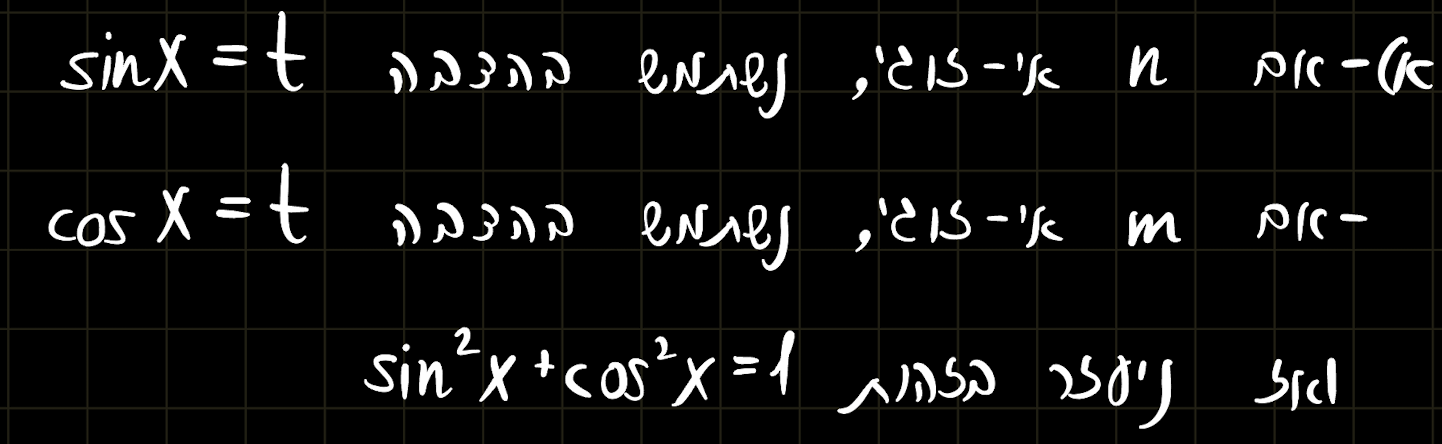 א)- אם n אי-זוגי, נשתמש בהצבה sinx = t
- אם m אי-זוגי, נשתמש בהצבה cos x = t
ואז ניעזר בזהות sin²x + cos²x = 1